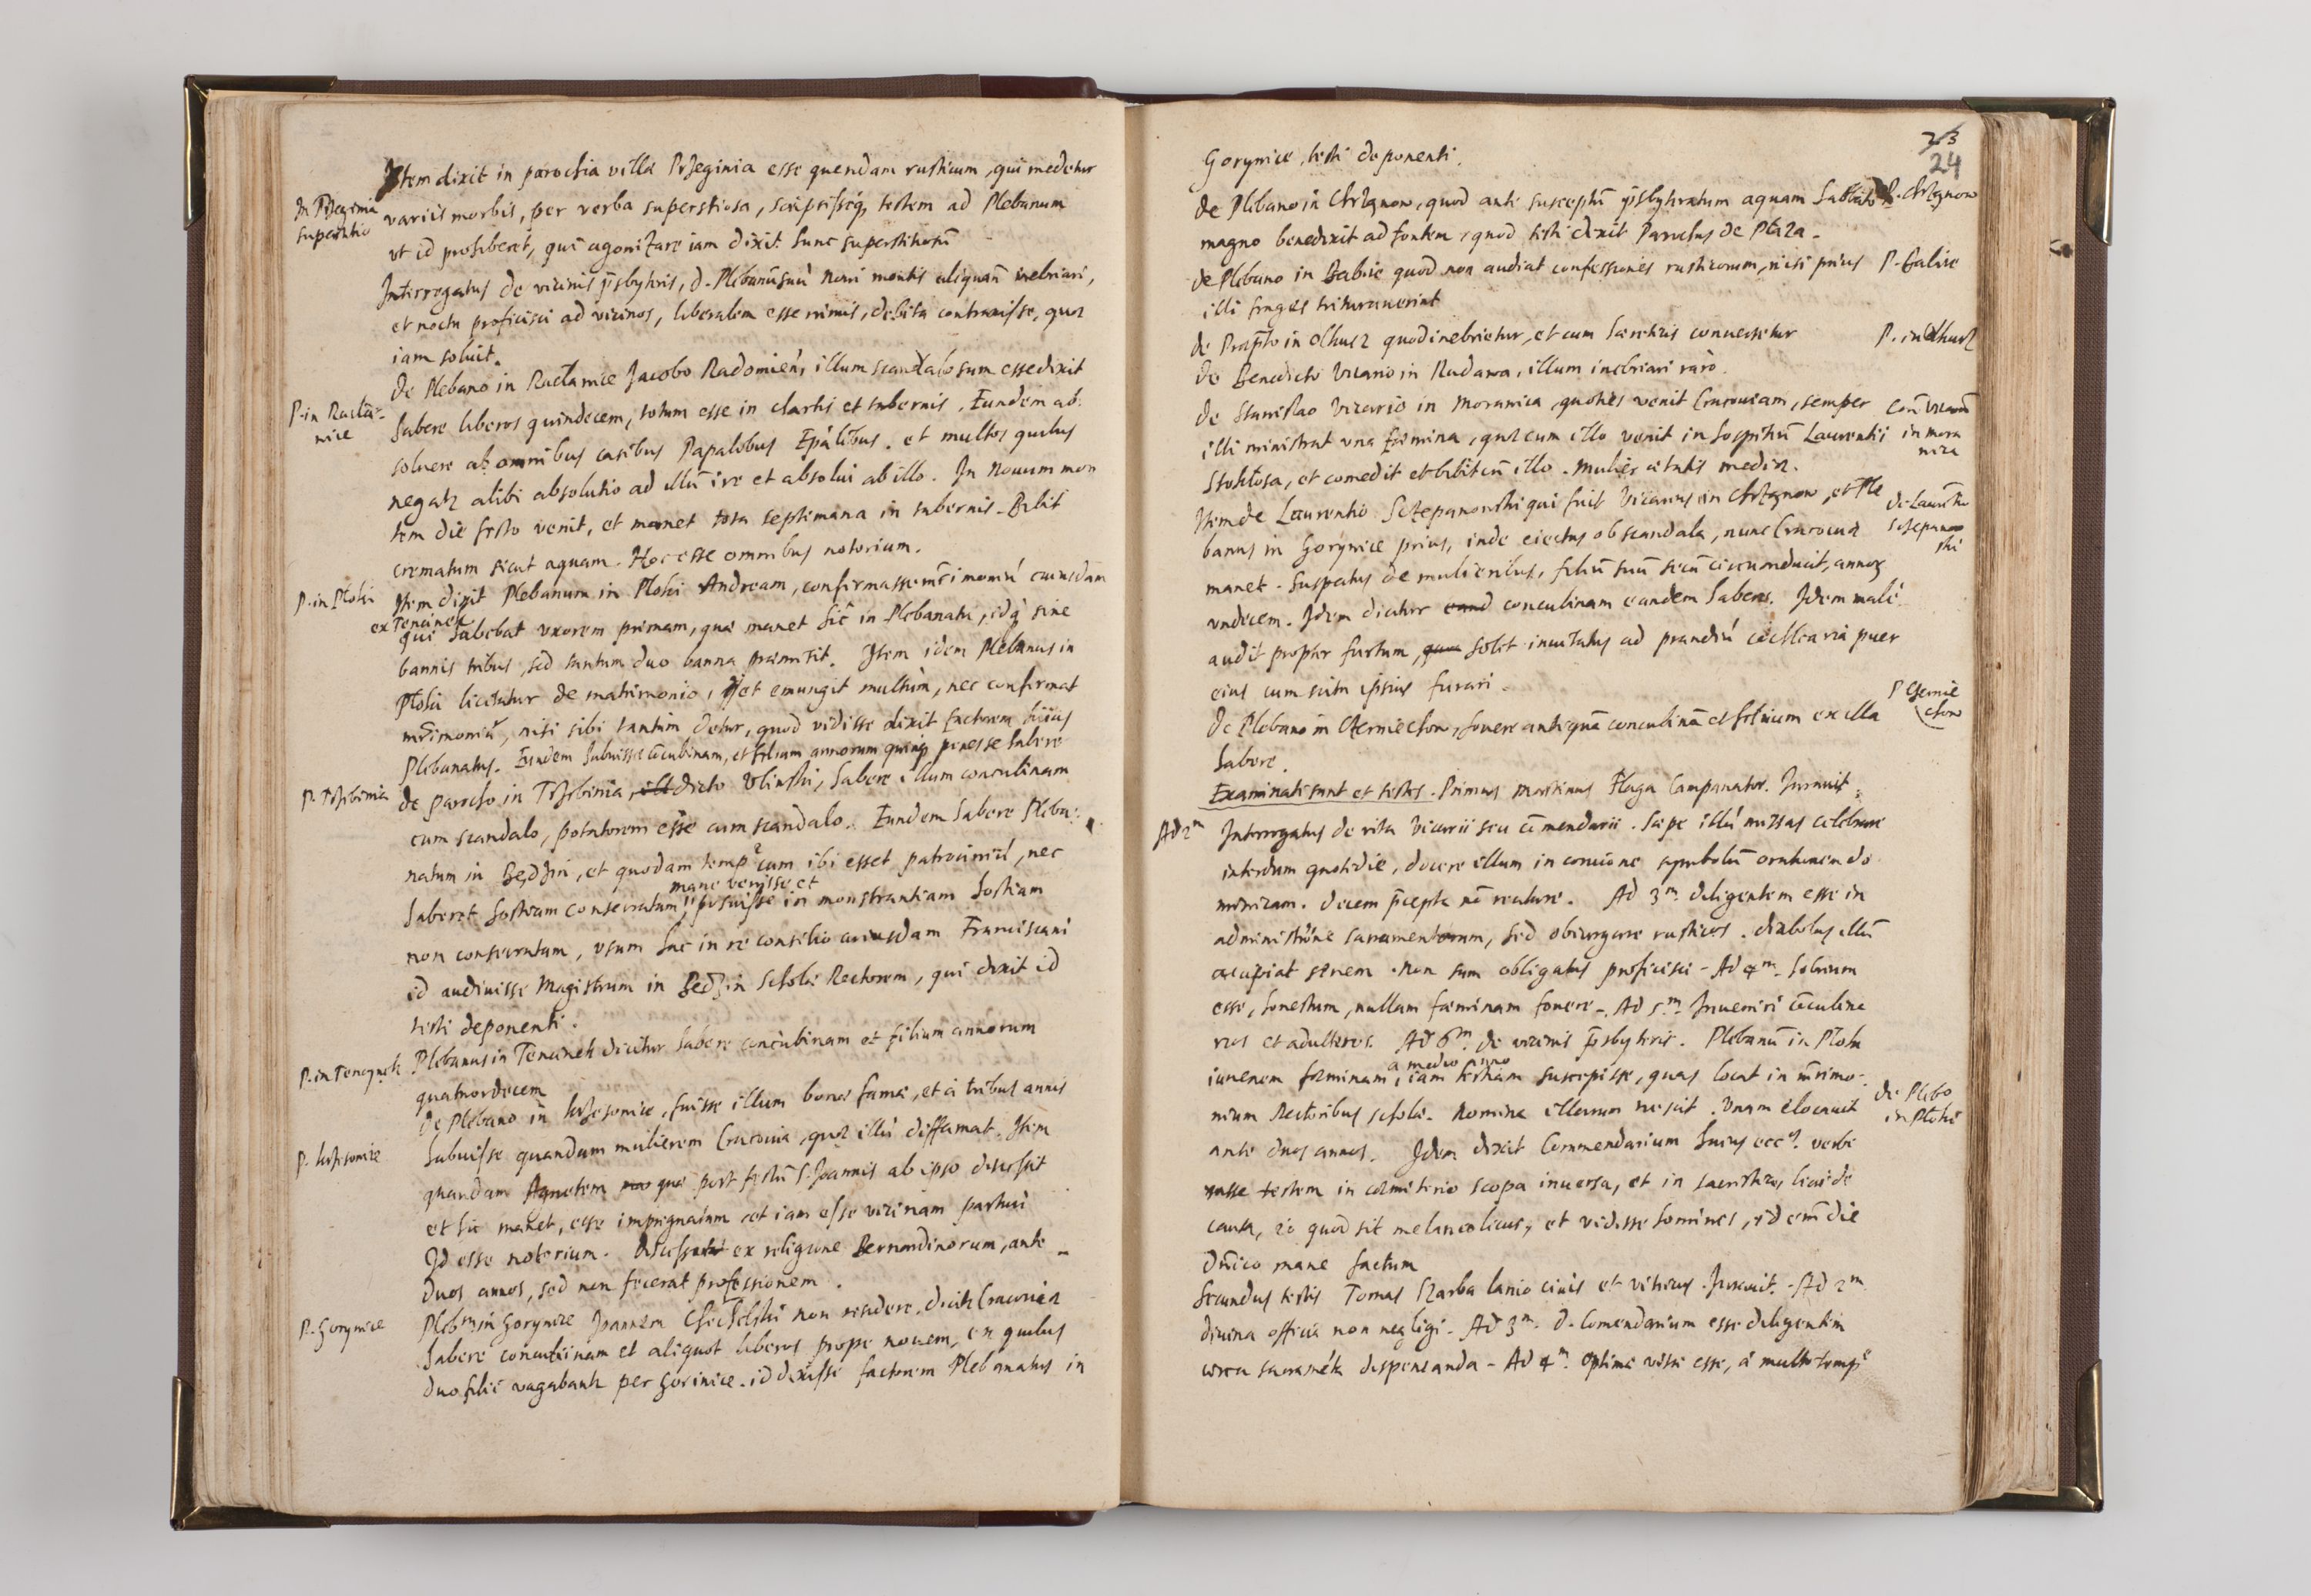 Item dixit in parochia villa Przeginia esse quendam rusticum, qui medetur
In Przeginia
superstitio
variis morbis, per verba superstiosa, scripsisseq, testem ad Plebanum
ut id prohiberet, qui agonizare iam dixit hunc superstitiosū
Interrogatus de vicinis p̄sbyteris, d. Plebanū suū Novi montis aliquañ inebriari,
et noctu proficisci ad vicinos, liberalem esse nimis, debita contraxisse, quæ
iam soluit.
P. in Racła-
nice
de Plebano in Racłanice Jacobo Radomień, illum scandalosum esse dixit
habere liberos quindecem, totum esse in chartis et tabernis. Eundem ab
soluere ab omnibus casibus Papalibus Ep̄alibus. et multos quibus
negatr alibi absolutio ad illū ire et absolui ab illo. In Nouum mon
tem die festo venit, et manet tota septimana in tabernis. Bibit
crematum sicut aquam. Hoc esse omnibus notorium.
P. in Płoki
Item dixit Plebanum in Ploki Andream, confirmasse m̄rimoniū cuiusdam
ex Tencinek
qui habebat uxorem primam, quæ manet hic in Plebanatu, idq̄ sine
bannis tribus, sed tantum duo banna præmitit. Item idem Plebanus in
Ploki licitatur de matrimonio, et emungit multùm, nec confirmat
m̄rimoniū, nisi sibi tantùm detur, quod vidisse dixit factorem huius
Plebanatus. Eundem habuisse c̄cubinam, et filiam annorum quinq penes se habere
P. Trzebinia
de parocho in Trzebinia, dicto Ulinski, habere illum conculinam
cum scandalo, potatorem esse cum scandalo. Eundem habere Pleba:
natum in Bedzin, et quodam temp̄e cum ibi esset patrociniū, nec
mane venisse et
haberet hostiam consecratam, posuisse in monstrantiam hostiam
non consecratam, usum hac in re consilio cuiusdam Franciscani
id audivisse Magistrum in Bedzin Scholæ Rectorem, qui dixit id
testi deponenti.
P. in Tencynek
Plebanus in Tencinek dicitur habere concubinam et filium annorum
quatuordecem
P. krzesonice
De Plebano in krzesonice, fuisse illum bonæ famæ, et à tribus annis
habuisse quandam mulierem Cracouia, quæ illū diffamat. Item
quandam Agnetem quæ post festū S. Joannis ab ipso discessit
et hic manet, esse impregnatam et iam esse vicinam partui
Id esse notorium. discess ex religione Bernardinorum, ante
duos annos, sed non fecerat professionem.
P. Gorynice
Pleb̄m in Gorynice Joannem non residere. dicitr Cracouiæ
habere concubinam et aliquot liberos prope nouem, ex quibus
duo filii vagabantr per Gorinice. id dixisse factorem Plebanatus in
23
24
Gorynice, testi deponenti.
De Plebano in Chrzanow, quod ante susceptū p̄sbyteratum aquam Sabbato
P. Chrzanow
magno benedixit ad fontem, quod testi dixit Parochus de Płaza.
de Plebano in Babice quod non audiat confessiones rusticorum, nisi prius
P. Babice
illi fruges triturauerint
de Præp̄to in Olkusz quod inebrietur, et cum hæreticis conuersetur
P. in Olkusz
de Benedicto Vicario in Rudawa, illum inebriari rarò.
de Stanislao Vicario in Morawica, quoties venit Cracouiam, semper
Con̄ vicariū
in mora
wica
illi ministrat una fæmina, quæ cum illo venit in hospitiū Laurentii
Stoklosa, et comedit et bibit cū illo. mulier ætatis mediæ.
Item de Laurentio Sczepanowski qui fuit Vicarius in Chrzanow, et Ple
de Laurētio
Sczepanow
ski
banus in Gorynice prius, inde eiectus ob scandala, nunc Cracouiæ
manet. Suspectus de mulieribus, filiū suū secū circumducit, annoꝝ
undecem. Idem dicitur conculinam eandem habens. Idem malè
audit propter furtum, solet inuitatus ad prandiū cochlearia puer
eius cum scitu ipsius furari.
P Czernie
chow
De Plebano in Czerniechow, fouere antiquā conculinā et filium ex illa
habere.
Examinati sunt et testes. Primus Martinus Flaga Campanator. Jurauit.
Ad 2m
Interrogatus de vita Vicarii seu c̄mendarii. Sæpe illū missas celebrare
interdum quotidie, docere illum in concione symbolū orationem do
minicam. decem p̄cepta nō recitare. Ad 3m diligentem esse in
administr̄one sacramentorum, sed obiurgare rusticos. diabolus illū
accipiat senem. Non sum obligatus proficisci - Ad 4m. Sobrium
esse, honestum, nullam fæminam fouere. Ad 5m. Inueniri c̄cubina
rios et adulteros. Ad 6m. De vicinis p̄sbyteris. Plebanū in Płoki
a medio anno
iuuenem fæminam, iam tertiam suscepisse, quas locat in m̄rimo-
nium Rectoribus scholæ. Nomina illarum nescit. Unam elocauit
de Plebo
in Płoki
ante duos annos. Idem dixit Commendarium huius eccæ. verbe
rasse testem in cæmiterio scopa inuersa, et in sacristia, licet de
causa, eo quod sit melancolicus, et vidisse homines, id em̄ die
dn̄ico mane factum
Secundus testis Tomas Skarba lanio ciuis et vitricus. Jurauit. - Ad 2m
diuina officia non negligi. Ad 3m. d. Comendarium esse diligentem
circa sacramēta dispensanda - Ad 4m. optimæ vitæ esse, à multo tempe